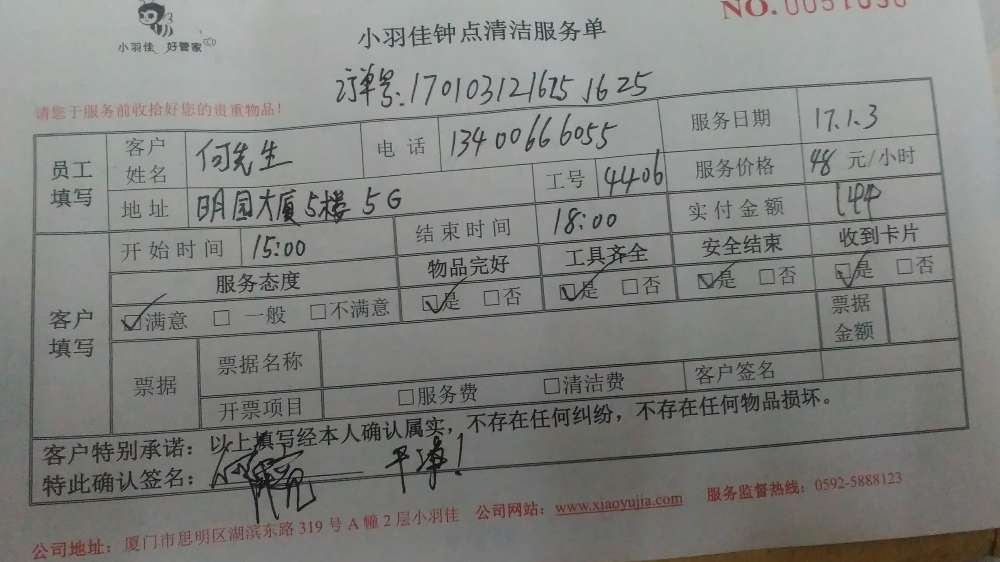 NO.0051090
小羽佳 好管家
小羽佳钟点清洁服务单
订单号:170103121625 1625
请您于服务前收拾好您的贵重物品!
员工填写 客户姓名 何先生 电话 13400666055 服务日期 17.1.3
地址 明园大厦5楼5G 工号 4406 服务价格 48 元/小时
客户填写 开始时间 15:00 结束时间 18:00 实付金额 144
服务态度 物品完好 工具齐全 安全结束 收到卡片
☑满意 □一般 □不满意 ☑是 □否 ☑是 □否 ☑是 □否 ☑是 □否
票据 票据名称 票据金额
开票项目 □服务费 □清洁费 客户签名
客户特别承诺:以上填写经本人确认属实,不存在任何纠纷,不存在任何物品损坏。
特此确认签名: 干净!
公司地址:厦门市思明区湖滨东路319号A幢2层小羽佳 公司网站:www.xiaoyujia.com 服务监督热线:0592-5888123